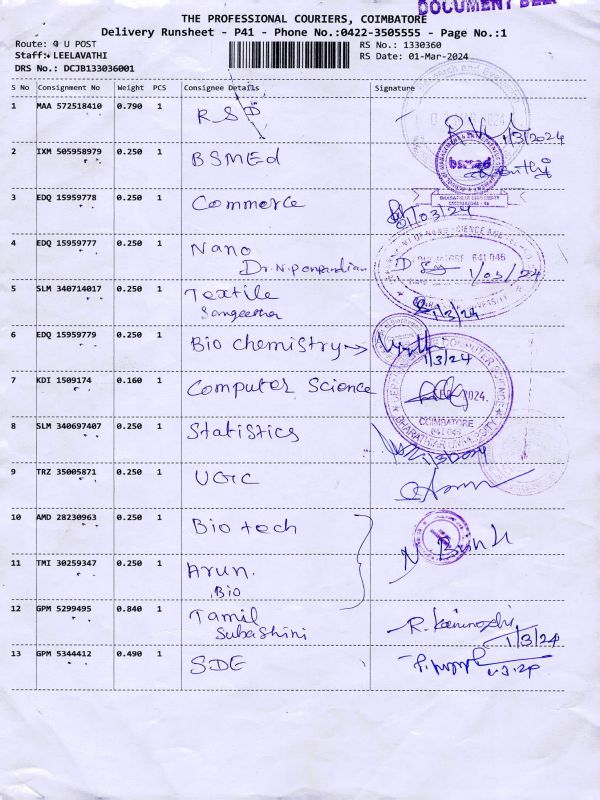 DOCUMENT
THE PROFESSIONAL COURIERS, COIMBATORE
Delivery Runsheet - P41 - Phone No.:0422-3505555 - Page No.:1
Route: U POST
RS No.: 1330360
Staff: LEELAVATHI
RS Date: 01-Mar-2024
DRS No.: DCJB133036001
S No Consignment No Weight PCS Consignee Details Signature
1 MAA 572518410 0.790 1 RSD
1/3/2024
2 IXM 505958979 0.250 1 BSMEd
bsmed
3 EDQ 15959778 0.250 1 Commerce
01/03/24
4 EDQ 15959777 0.250 1 Nano
Dr. N. Ponpandian
1/03/24
5 SLM 340714017 0.250 1 Textile
Sangeetha
1/3/24
6 EDQ 15959779 0.250 1 Bio chemistry
1/3/24
7 KDI 1509174 0.160 1 Computer Science
2024.
COIMBATORE
641 046
BHARATHIAR UNIVERSITY
8 SLM 340697407 0.250 1 Statistics
9 TRZ 35005871 0.250 1 UGC
10 AMD 28230963 0.250 1 Bio tech
11 TMI 30259347 0.250 1 Arun.
Bio
12 GPM 5299495 0.840 1 Tamil
Subashini
R. Kanimozhi
1/3/24
13 GPM 5344412 0.490 1 SDE